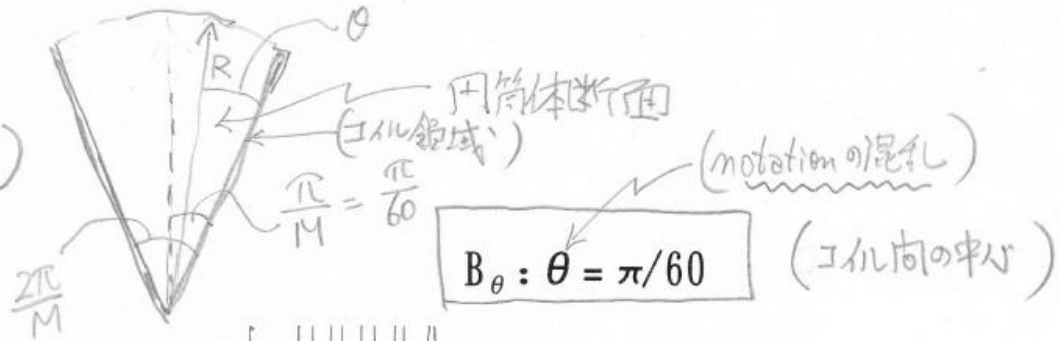 θ
R
円筒体断面
(コイル領域)
)
π/M = π/60
(notationの混乱)
B_θ : θ = π/60
(コイル間の中心)
2π/M